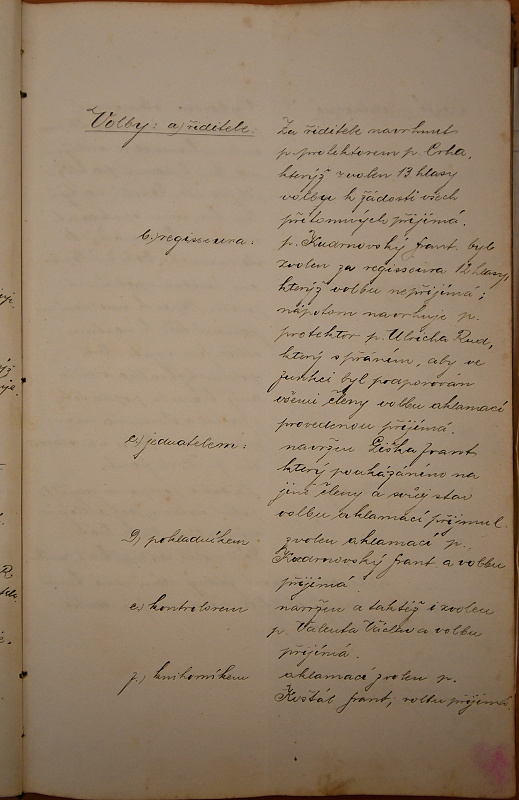 Volby: a) ředitele: Za ředitele navrhnut
p. protektorem p. Erha,
kterýž zvolen 13 hlasy
volbu k žádosti všech
přítomných přijímá.
b.) regisseura: p. Kudrnovský Frant. byl
zvolen za regisseura 12 hlasy,
kterýž volbu nepřijímá;
nápotom navrhuje p.
protektor p. Ulricha Rud,
který s přáním, aby ve
funkci byl podporován
všemi členy volbu aklamací
provedenou přijímá.
c.) jednatelem: navržen Liška Frant
který poukázáním na
jiné členy a svůj stav
volbu aklamací přijmul.
D) pokladníkem zvolen aklamací p.
Kudrnovský Frant a volbu
přijímá
e.) kontrolorem navržen a taktéž i zvolen
p. Valenta Václav a volbu
přijímá.
f.) knihovníkem aklamací zvolen p.
Košťál Frant, volbu přijímá.